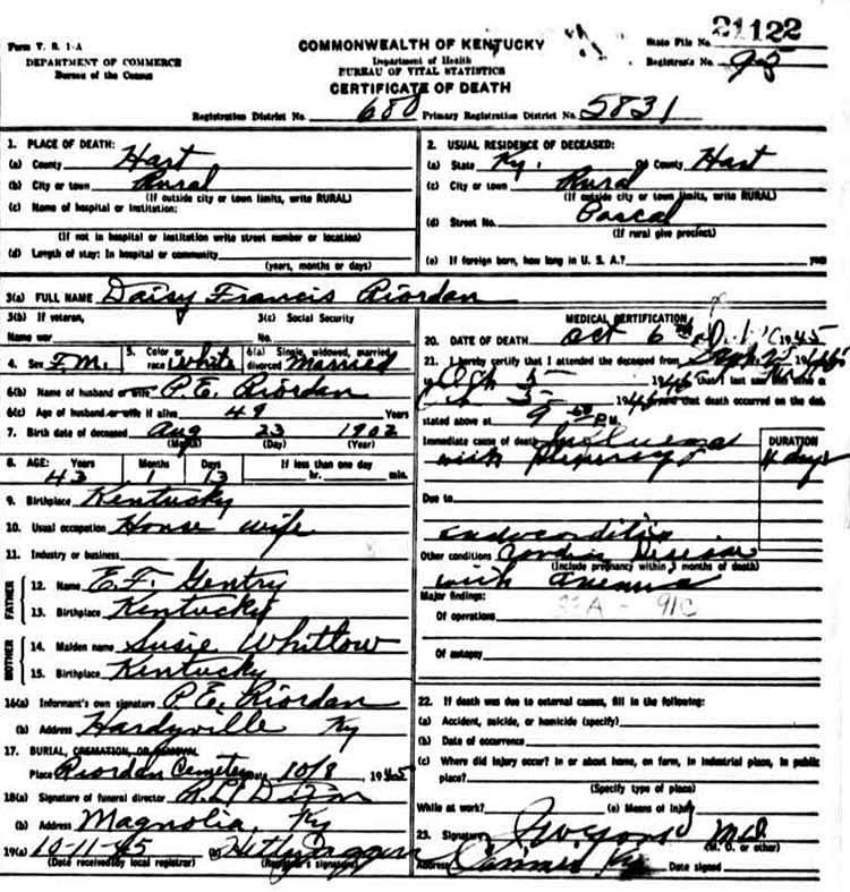 21122
Form V. S. 1-A
COMMONWEALTH OF KENTUCKY
State File No.
DEPARTMENT OF COMMERCE
Department of Health
Registrar's No. 95
Bureau of the Census
BUREAU OF VITAL STATISTICS
CERTIFICATE OF DEATH
Registration District No. 680 Primary Registration District No. 5831
1. PLACE OF DEATH:
(a) County Hart
(b) City or town Rural
(If outside city or town limits, write RURAL)
(c) Name of hospital or institution:
(If not in hospital or institution write street number or location)
(d) Length of stay: In hospital or community
(years, months or days)
2. USUAL RESIDENCE OF DECEASED:
(a) State Ky. (b) County Hart
(c) City or town Rural
(If outside city or town limits, write RURAL)
(d) Street No. Pascal
(If rural give precinct)
(e) If foreign born, how long in U. S. A.? years
3(a) FULL NAME Daisy Francis Riordan
3(b) If veteran, 3(c) Social Security
Name war No.
4. Sex F.M. 5. Color or race White 6(a) Single, widowed, married, divorced Married
6(b) Name of husband or wife P.E. Riordan
6(c) Age of husband or wife if alive 49 Years
7. Birth date of deceased Aug 23 1902
(Month) (Day) (Year)
8. AGE: Years Months Days If less than one day
43 1 13 hr. min.
9. Birthplace Kentucky
10. Usual occupation House wife
11. Industry or business
FATHER
12. Name E.F. Gentry
13. Birthplace Kentucky
MOTHER
14. Maiden name Susie Whitlow
15. Birthplace Kentucky
16(a) Informant's own signature P.E. Riordan
(b) Address Hardyville Ky
17. BURIAL, CREMATION, OR REMOVAL
Place Riordan Cemetery Date 10/8 1945
18(a) Signature of funeral director
(b) Address Magnolia, Ky
19(a) 10-11-45 (b)
(Date received by local registrar) (Registrar's signature)
MEDICAL CERTIFICATION
20. DATE OF DEATH Oct 6 1945
21. I hereby certify that I attended the deceased from
that I last saw
and that death occurred on the date
stated above at 9 P.M.
Immediate cause of death Influenza
with
DURATION
4 days
Due to
endocarditis
Other conditions Cardiac Disease
(Include pregnancy within 3 months of death)
with anemia
Major findings:
Of operations
Of autopsy
22. If death was due to external causes, fill in the following:
(a) Accident, suicide, or homicide (specify)
(b) Date of occurrence
(c) Where did injury occur? In or about home, on farm, in industrial place, in public
place?
(Specify type of place)
While at work? (e) Means of Injury
23. Signature MD
(M. D. or other)
Address Ky Date signed